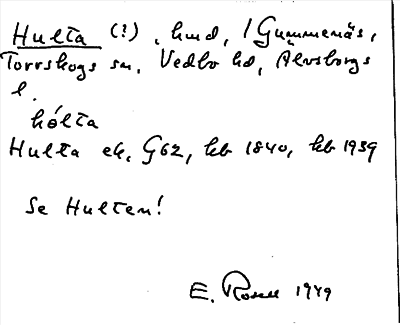 Hulta (?), hmd, / Gummenäs,
Torrskogs sn, Vedbo hd, Älvsborgs
l.
hólta
Hulta ek, G62, kb 1840, kb 1939
Se Hulten!
E. Rosell 1949